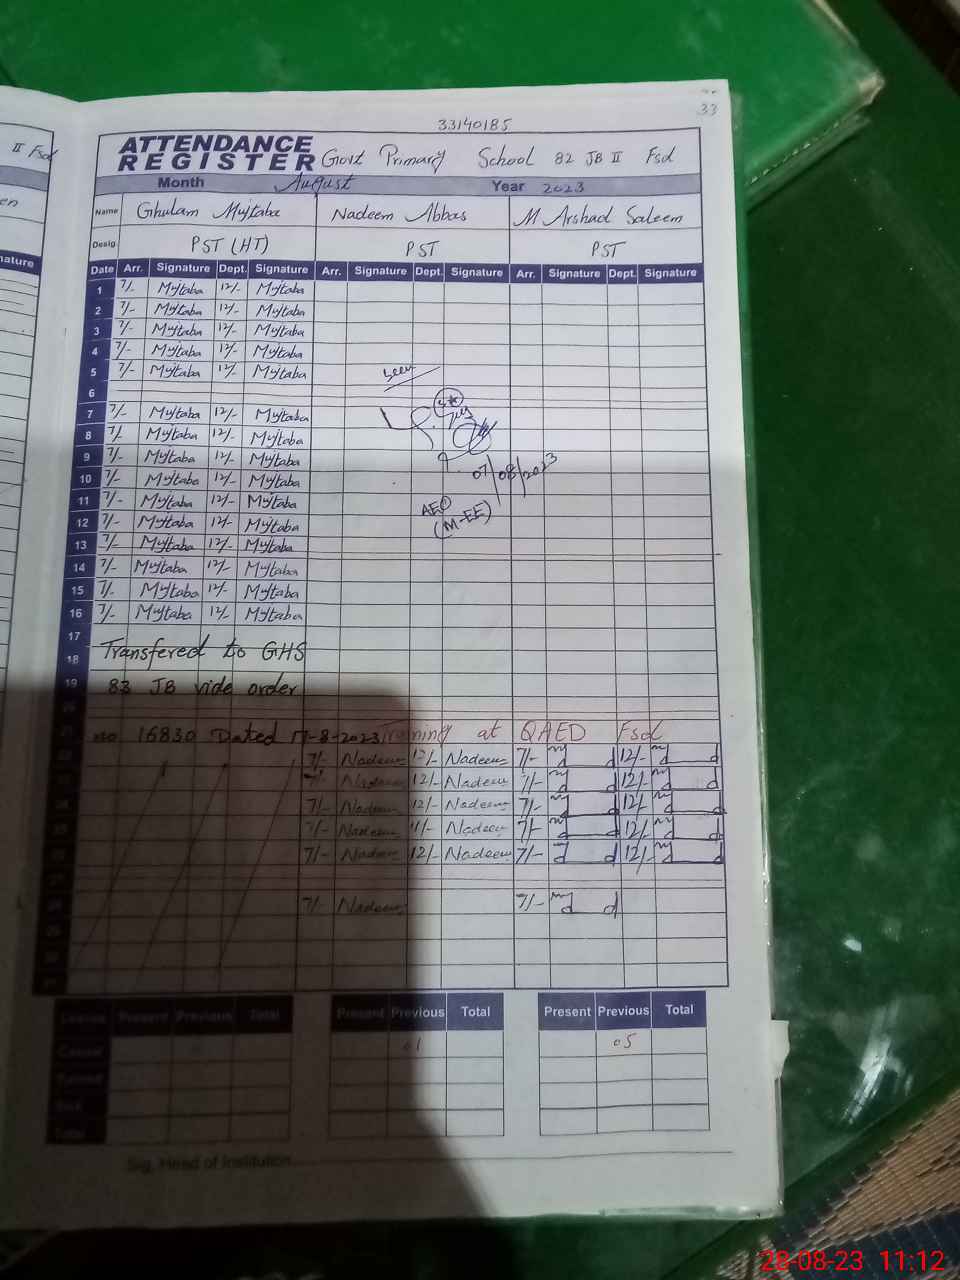 33
33140185
II Fsd
ATTENDANCE REGISTER Govt Primary School 82 JB II Fsd
Month August Year 2023
Name Ghulam Mujtaba Nadeem Abbas M Arshad Saleem
Desig PST (HT) PST PST
Date Arr. Signature Dept. Signature Arr. Signature Dept. Signature Arr. Signature Dept. Signature
1 7/- Mujtaba 12/- Mujtaba
2 7/- Mujtaba 12/- Mujtaba
3 7/- Mujtaba 12/- Mujtaba
4 7/- Mujtaba 12/- Mujtaba
5 7/- Mujtaba 12/- Mujtaba
seen
6
7 7/- Mujtaba 12/- Mujtaba
8 7/- Mujtaba 12/- Mujtaba
9 7/- Mujtaba 12/- Mujtaba
07/08/2023
10 7/- Mujtaba 12/- Mujtaba
11 7/- Mujtaba 12/- Mujtaba
AEO
(M-EE)
12 7/- Mujtaba 12/- Mujtaba
13 7/- Mujtaba 12/- Mujtaba
14 7/- Mujtaba 12/- Mujtaba
15 7/- Mujtaba 12/- Mujtaba
16 7/- Mujtaba 12/- Mujtaba
17
18 Transfered to GHS
19 83 JB vide order
no 16830 Dated 17-8-2023 Training at QAED Fsd
7/- Nadeem 12/- Nadeem 7/- 12/-
7/- Nadeem 12/- Nadeem 7/- 12/-
7/- Nadeem 12/- Nadeem 7/- 12/-
7/- Nadeem 12/- Nadeem 7/- 12/-
7/- Nadeem 12/- Nadeem 7/- 12/-
7/- Nadeem 7/-
Leaves Present Previous Total Present Previous Total Present Previous Total
Casual 01 05
Sig. Head of Institution
28-08-23 11:12